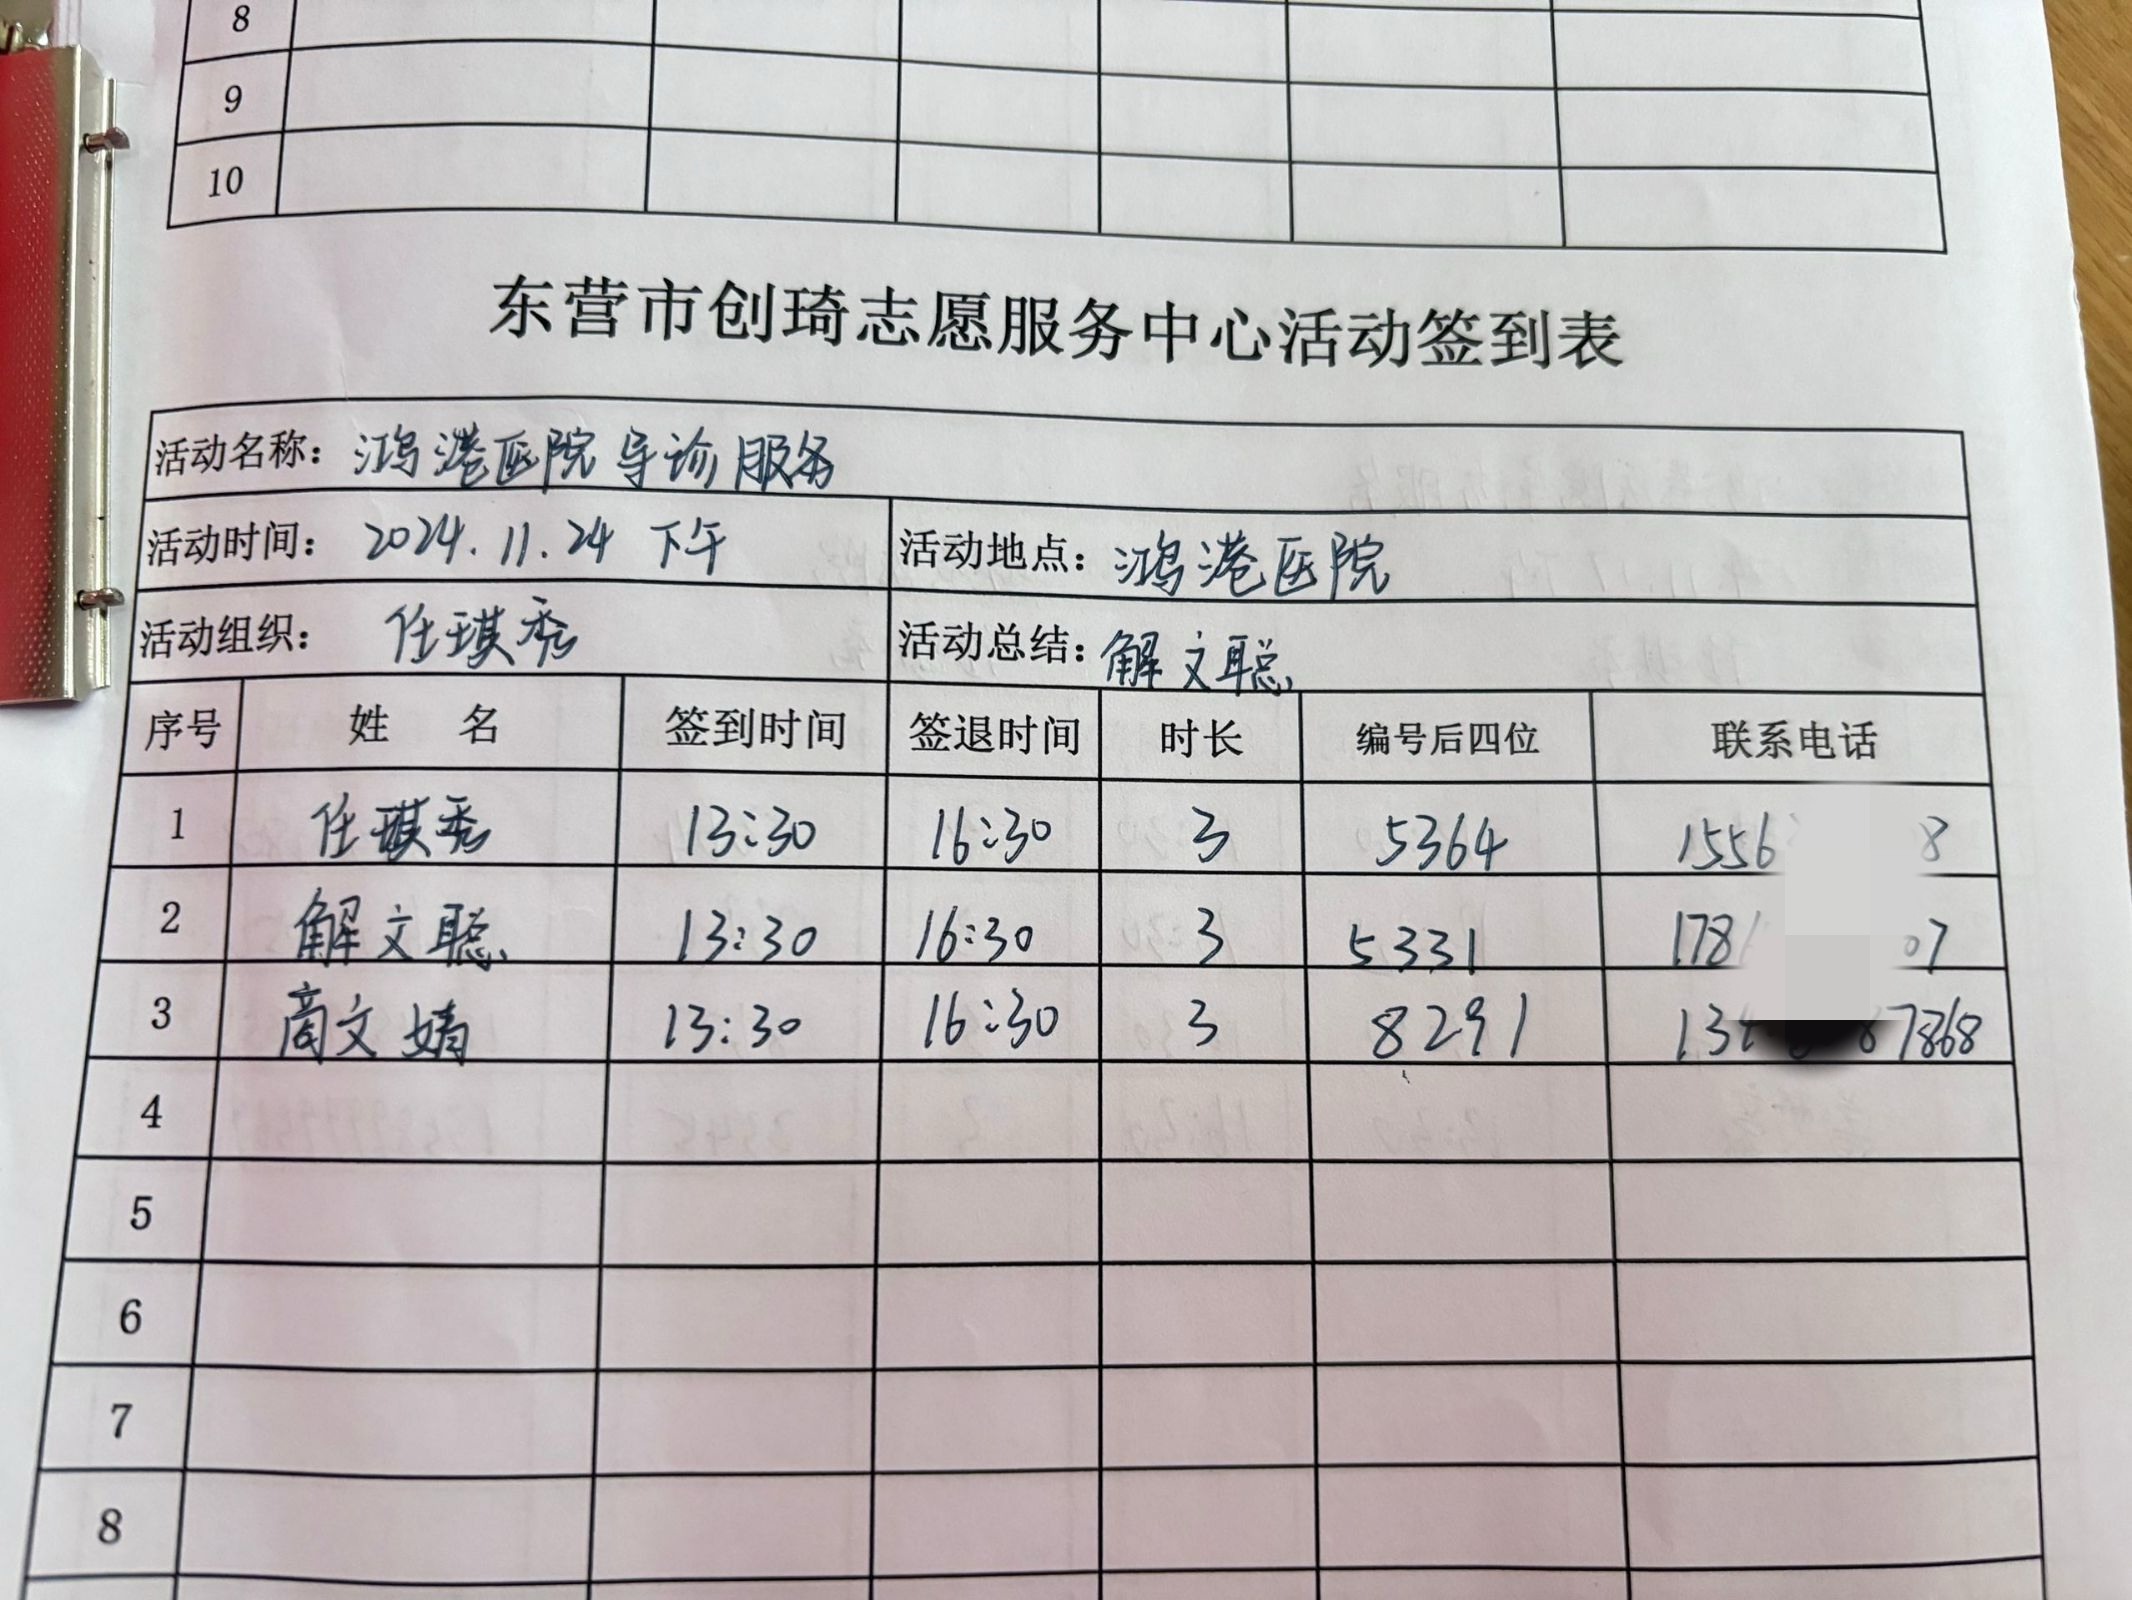 8
9
10
东营市创琦志愿服务中心活动签到表
活动名称：鸿港医院导诊服务
活动时间：2024.11.24 下午 活动地点：鸿港医院
活动组织：任琪秀 活动总结：解文聪
序号 姓 名 签到时间 签退时间 时长 编号后四位 联系电话
1 任琪秀 13:30 16:30 3 5364 1556 8
2 解文聪 13:30 16:30 3 5331 178 07
3 商文婧 13:30 16:30 3 8291 13 7868
4
5
6
7
8